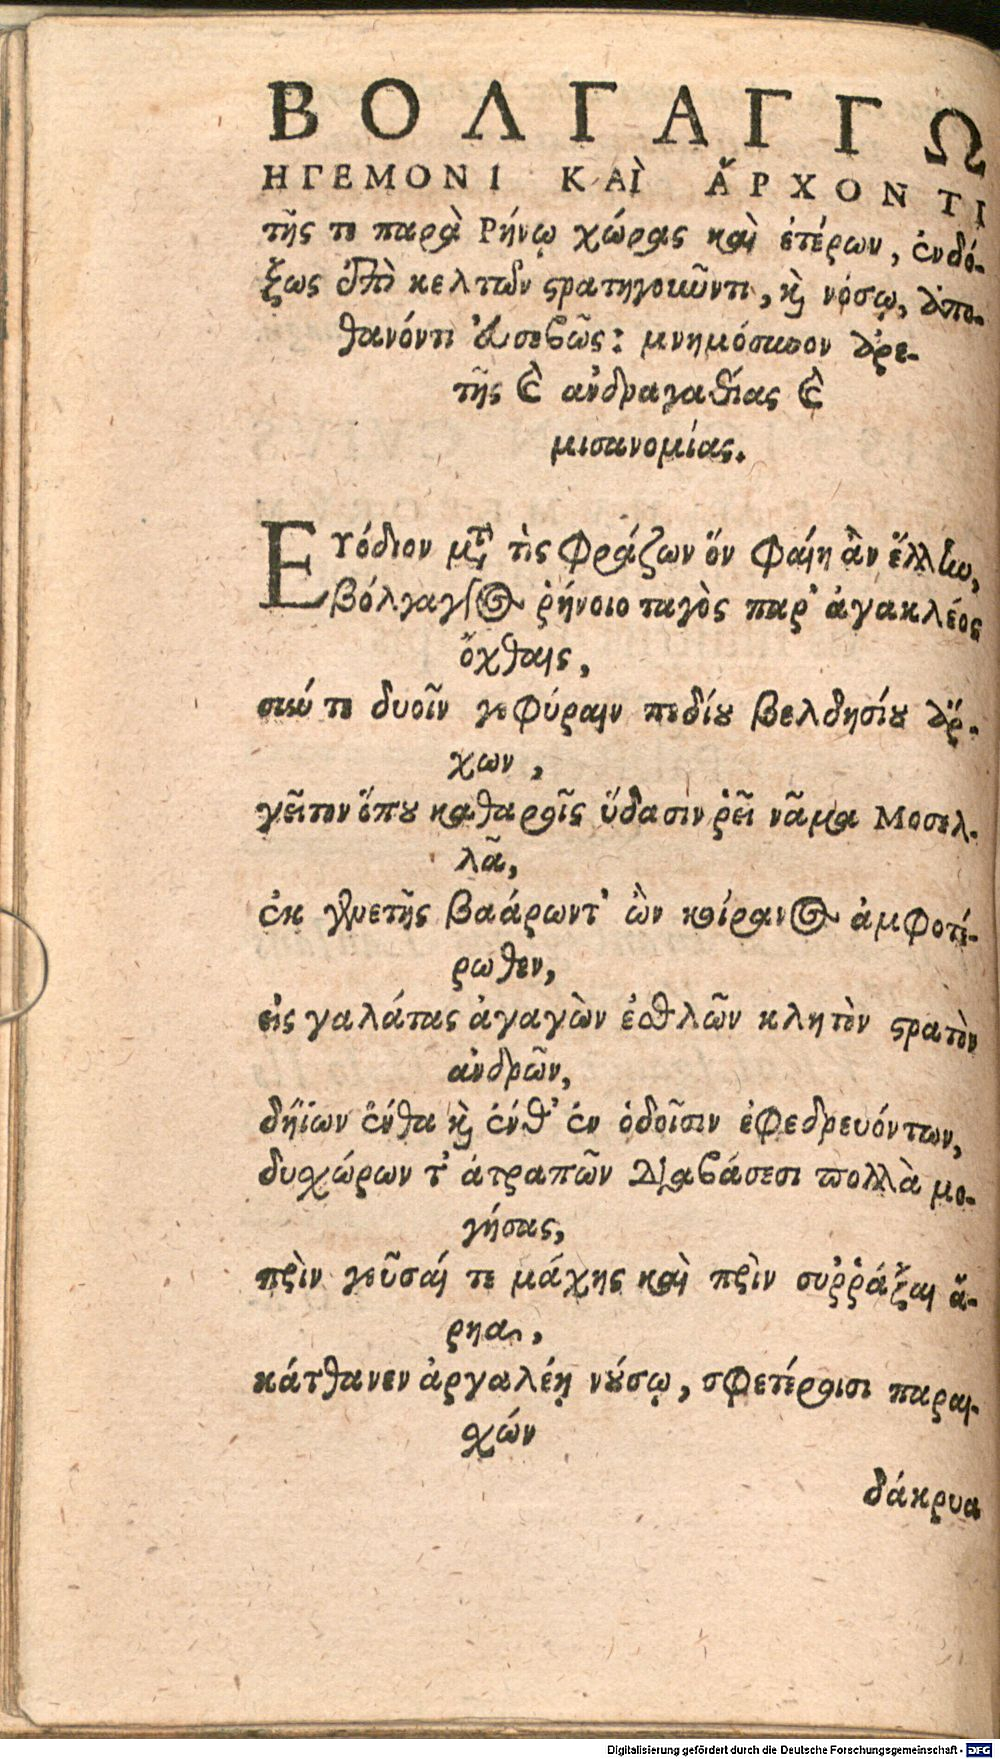 ΒΟΛΓΑΓΓΩ
ΗΓΕΜΟΝΙ ΚΑῚ ἌΡΧΟΝΤΙ
τῆς τε παρὰ Ρήνῳ χώρας καὶ ἑτέρων, ἐνδό-
ξως ἐπὶ κελτῶν στρατηγοιῶντι, καὶ νόσῳ, ἀπο-
θανόντι εὐσεβῶς: μνημόσυνον ἀρε-
τῆς καὶ ἀνδραγαθίας καὶ
μισανομίας.
ΕΥόδιον μετὰ τὶς φράζων ὃν φαίη ἂν ἕλλην,
βόλγαγγος ῥήνοιο ταγὸς παρ' ἀγακλέος
ὄχθαις,
σιωύ τε δυοῖν γεφύραιν πεδίου βελδησίου ἄρ-
χων,
γεῖτον ὅπου καθαροῖς ὕδασιν ῥεῖ νᾶμα Μοσελ-
λᾶ,
ἐκ γενετῆς βαάρωντ' ὢν κοίρανος ἀμφοτέ-
ρωθεν,
εἰς γαλάτας ἀγαγὼν ἐσθλῶν κλητὸν στρατὸν
ἀνδρῶν,
δηΐων ἔνθα καὶ ἔνθ' ἐν ὁδοῖσιν ἐφεδρευόντων,
δυχώρων τ' ἀτραπῶν διαβάσεσι πολλὰ μο-
γήσας,
πρὶν γεῦσαί τε μάχης καὶ πρὶν συῤῥάξαι ἄ-
ρηα,
κάτθανεν ἀργαλέῃ νούσῳ, σφετέροισι παρα-
χών
δάκρυα
Digitalisierung gefördert durch die Deutsche Forschungsgemeinschaft - DFG